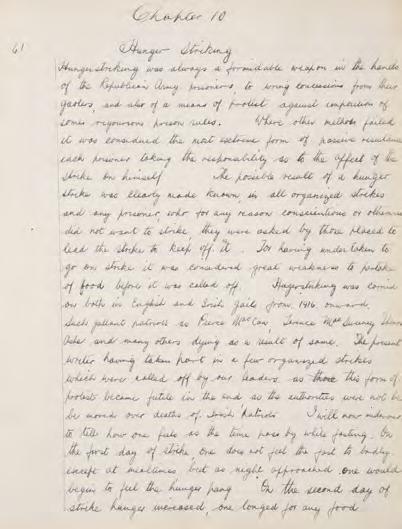 Chapter 10
61
Hunger Striking
Hungerstriking was always a formidable weapon in the hands
of the Republican Army prisoners, to wring concessions from their
gaolers, and also of a means of protest against imposition of
some rigourous prison rules. Where other methods failed
it was considered the most extreme form of passive resistance
each prisoner taking the responsibility as to the affect of the
strike on himself The possible result of a hunger
strike was clearly made known, in all organized strikes
and any prisoner, who for any reason conscientious or otherwise
did not want to strike, they were asked by those placed to
lead the strike to keep off it. For having undertaken to
go on strike it was considered great weakness to partake
of food before it was called off. Hungerstriking was carried
on both in English and Irish Jails from 1916 onward.
Such gallant patriots as Pierce MacCan, Terence MacSweeney Thomas
Ashe and many others dying as a result of same. The present
writer having taken part in a few organized strikes
which were called off by our leaders as this form of
protest became futile in the end as the authorities were not to
be moved over deaths of Irish Patriots I will now endeavour
to tell how one feels as the time pass by while fasting. On
the first day of strike, one does not feel the fast to badly
except at mealtimes but as night approached one would
begin to feel the hunger pang On the second day of
strike hunger increased, one longed for any food